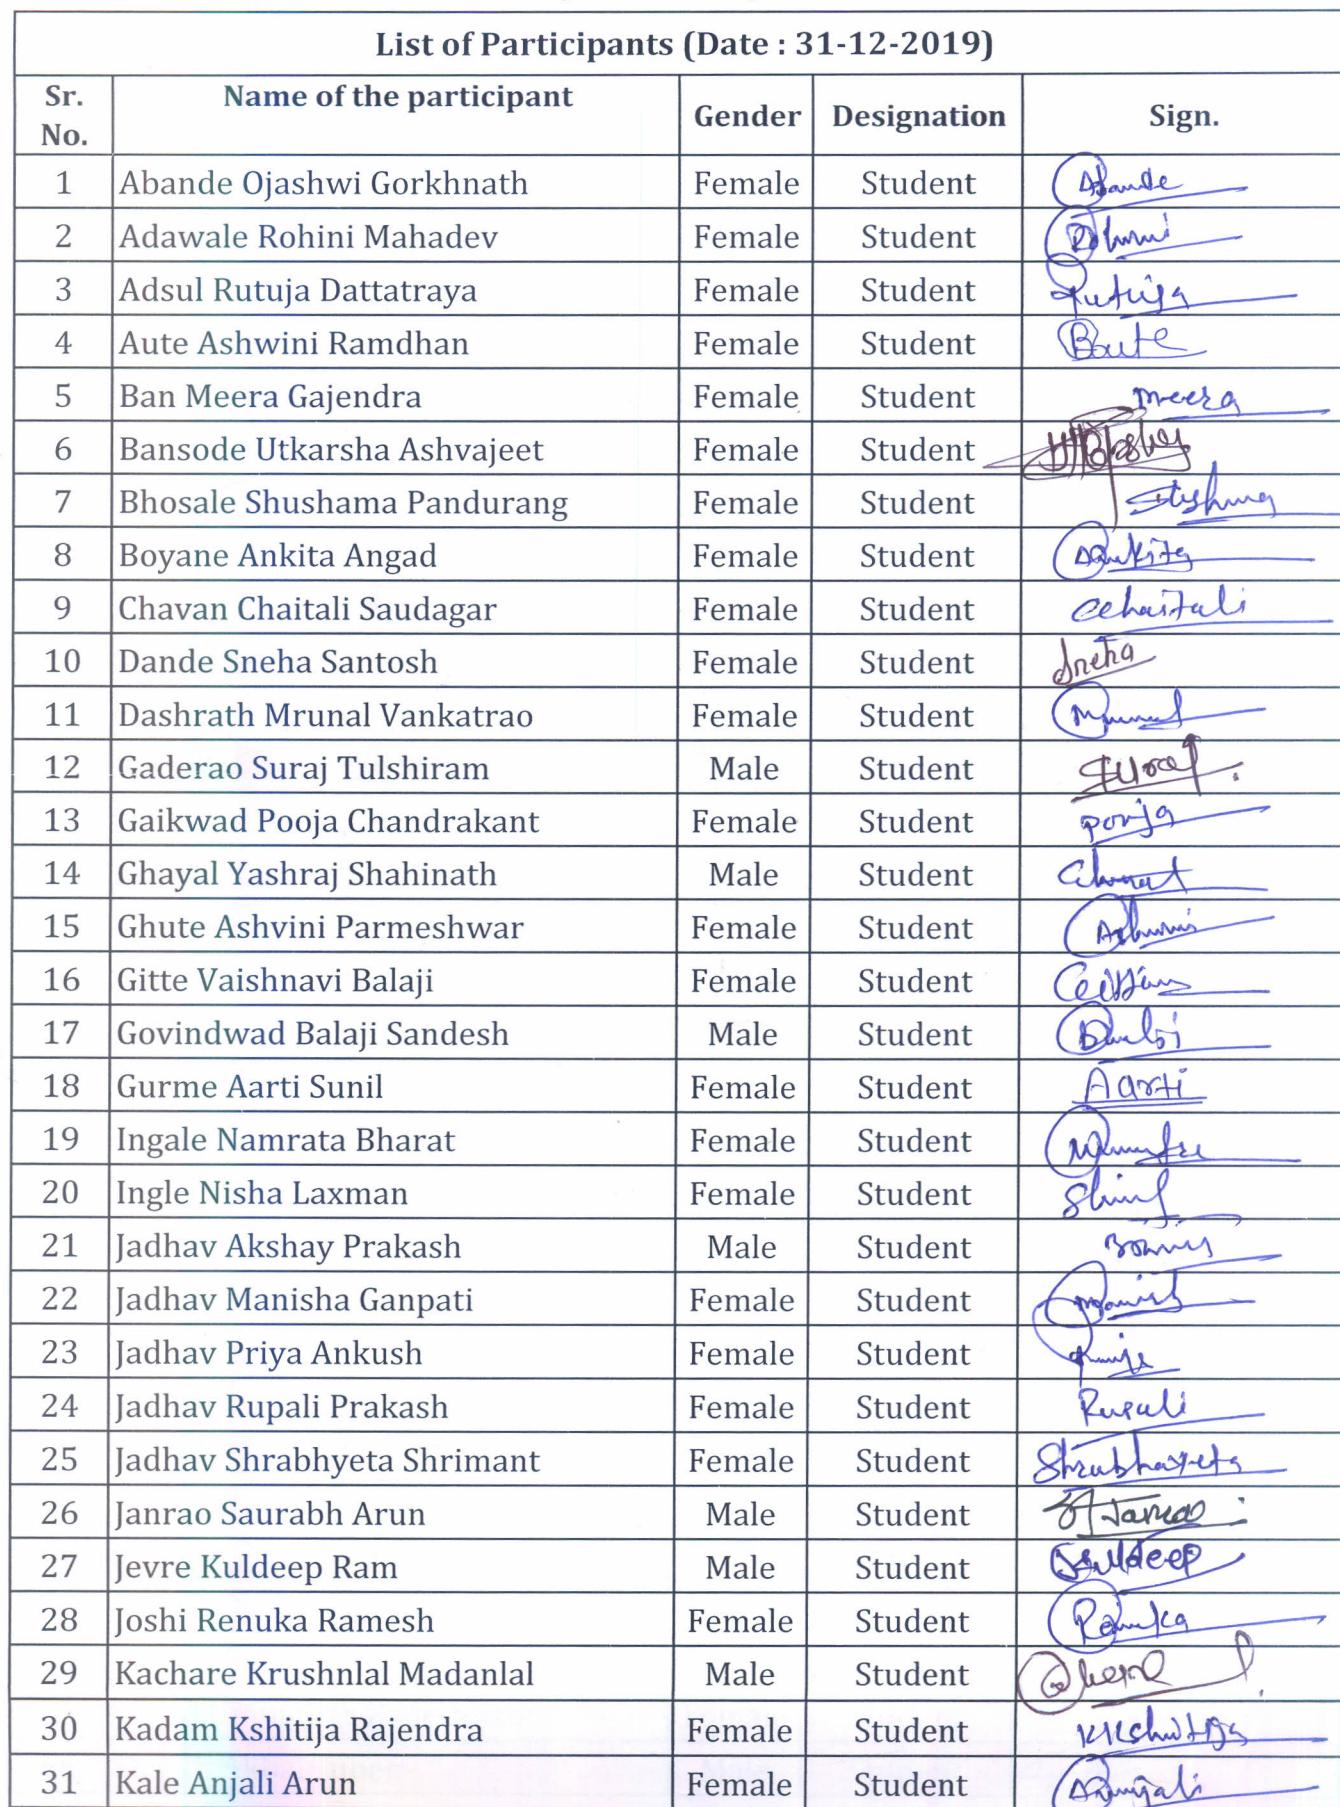 List of Participants (Date : 31-12-2019)
Sr. No. Name of the participant Gender Designation Sign.
1 Abande Ojashwi Gorkhnath Female Student Abande
2 Adawale Rohini Mahadev Female Student Rohini
3 Adsul Rutuja Dattatraya Female Student Rutuja
4 Aute Ashwini Ramdhan Female Student
5 Ban Meera Gajendra Female Student Meera
6 Bansode Utkarsha Ashvajeet Female Student
7 Bhosale Shushama Pandurang Female Student
8 Boyane Ankita Angad Female Student
9 Chavan Chaitali Saudagar Female Student
10 Dande Sneha Santosh Female Student Sneha
11 Dashrath Mrunal Vankatrao Female Student
12 Gaderao Suraj Tulshiram Male Student Suraj
13 Gaikwad Pooja Chandrakant Female Student
14 Ghayal Yashraj Shahinath Male Student
15 Ghute Ashvini Parmeshwar Female Student
16 Gitte Vaishnavi Balaji Female Student
17 Govindwad Balaji Sandesh Male Student
18 Gurme Aarti Sunil Female Student Aarti
19 Ingale Namrata Bharat Female Student
20 Ingle Nisha Laxman Female Student
21 Jadhav Akshay Prakash Male Student
22 Jadhav Manisha Ganpati Female Student
23 Jadhav Priya Ankush Female Student
24 Jadhav Rupali Prakash Female Student Rupali
25 Jadhav Shrabhyeta Shrimant Female Student
26 Janrao Saurabh Arun Male Student
27 Jevre Kuldeep Ram Male Student Kuldeep
28 Joshi Renuka Ramesh Female Student Renuka
29 Kachare Krushnlal Madanlal Male Student
30 Kadam Kshitija Rajendra Female Student
31 Kale Anjali Arun Female Student